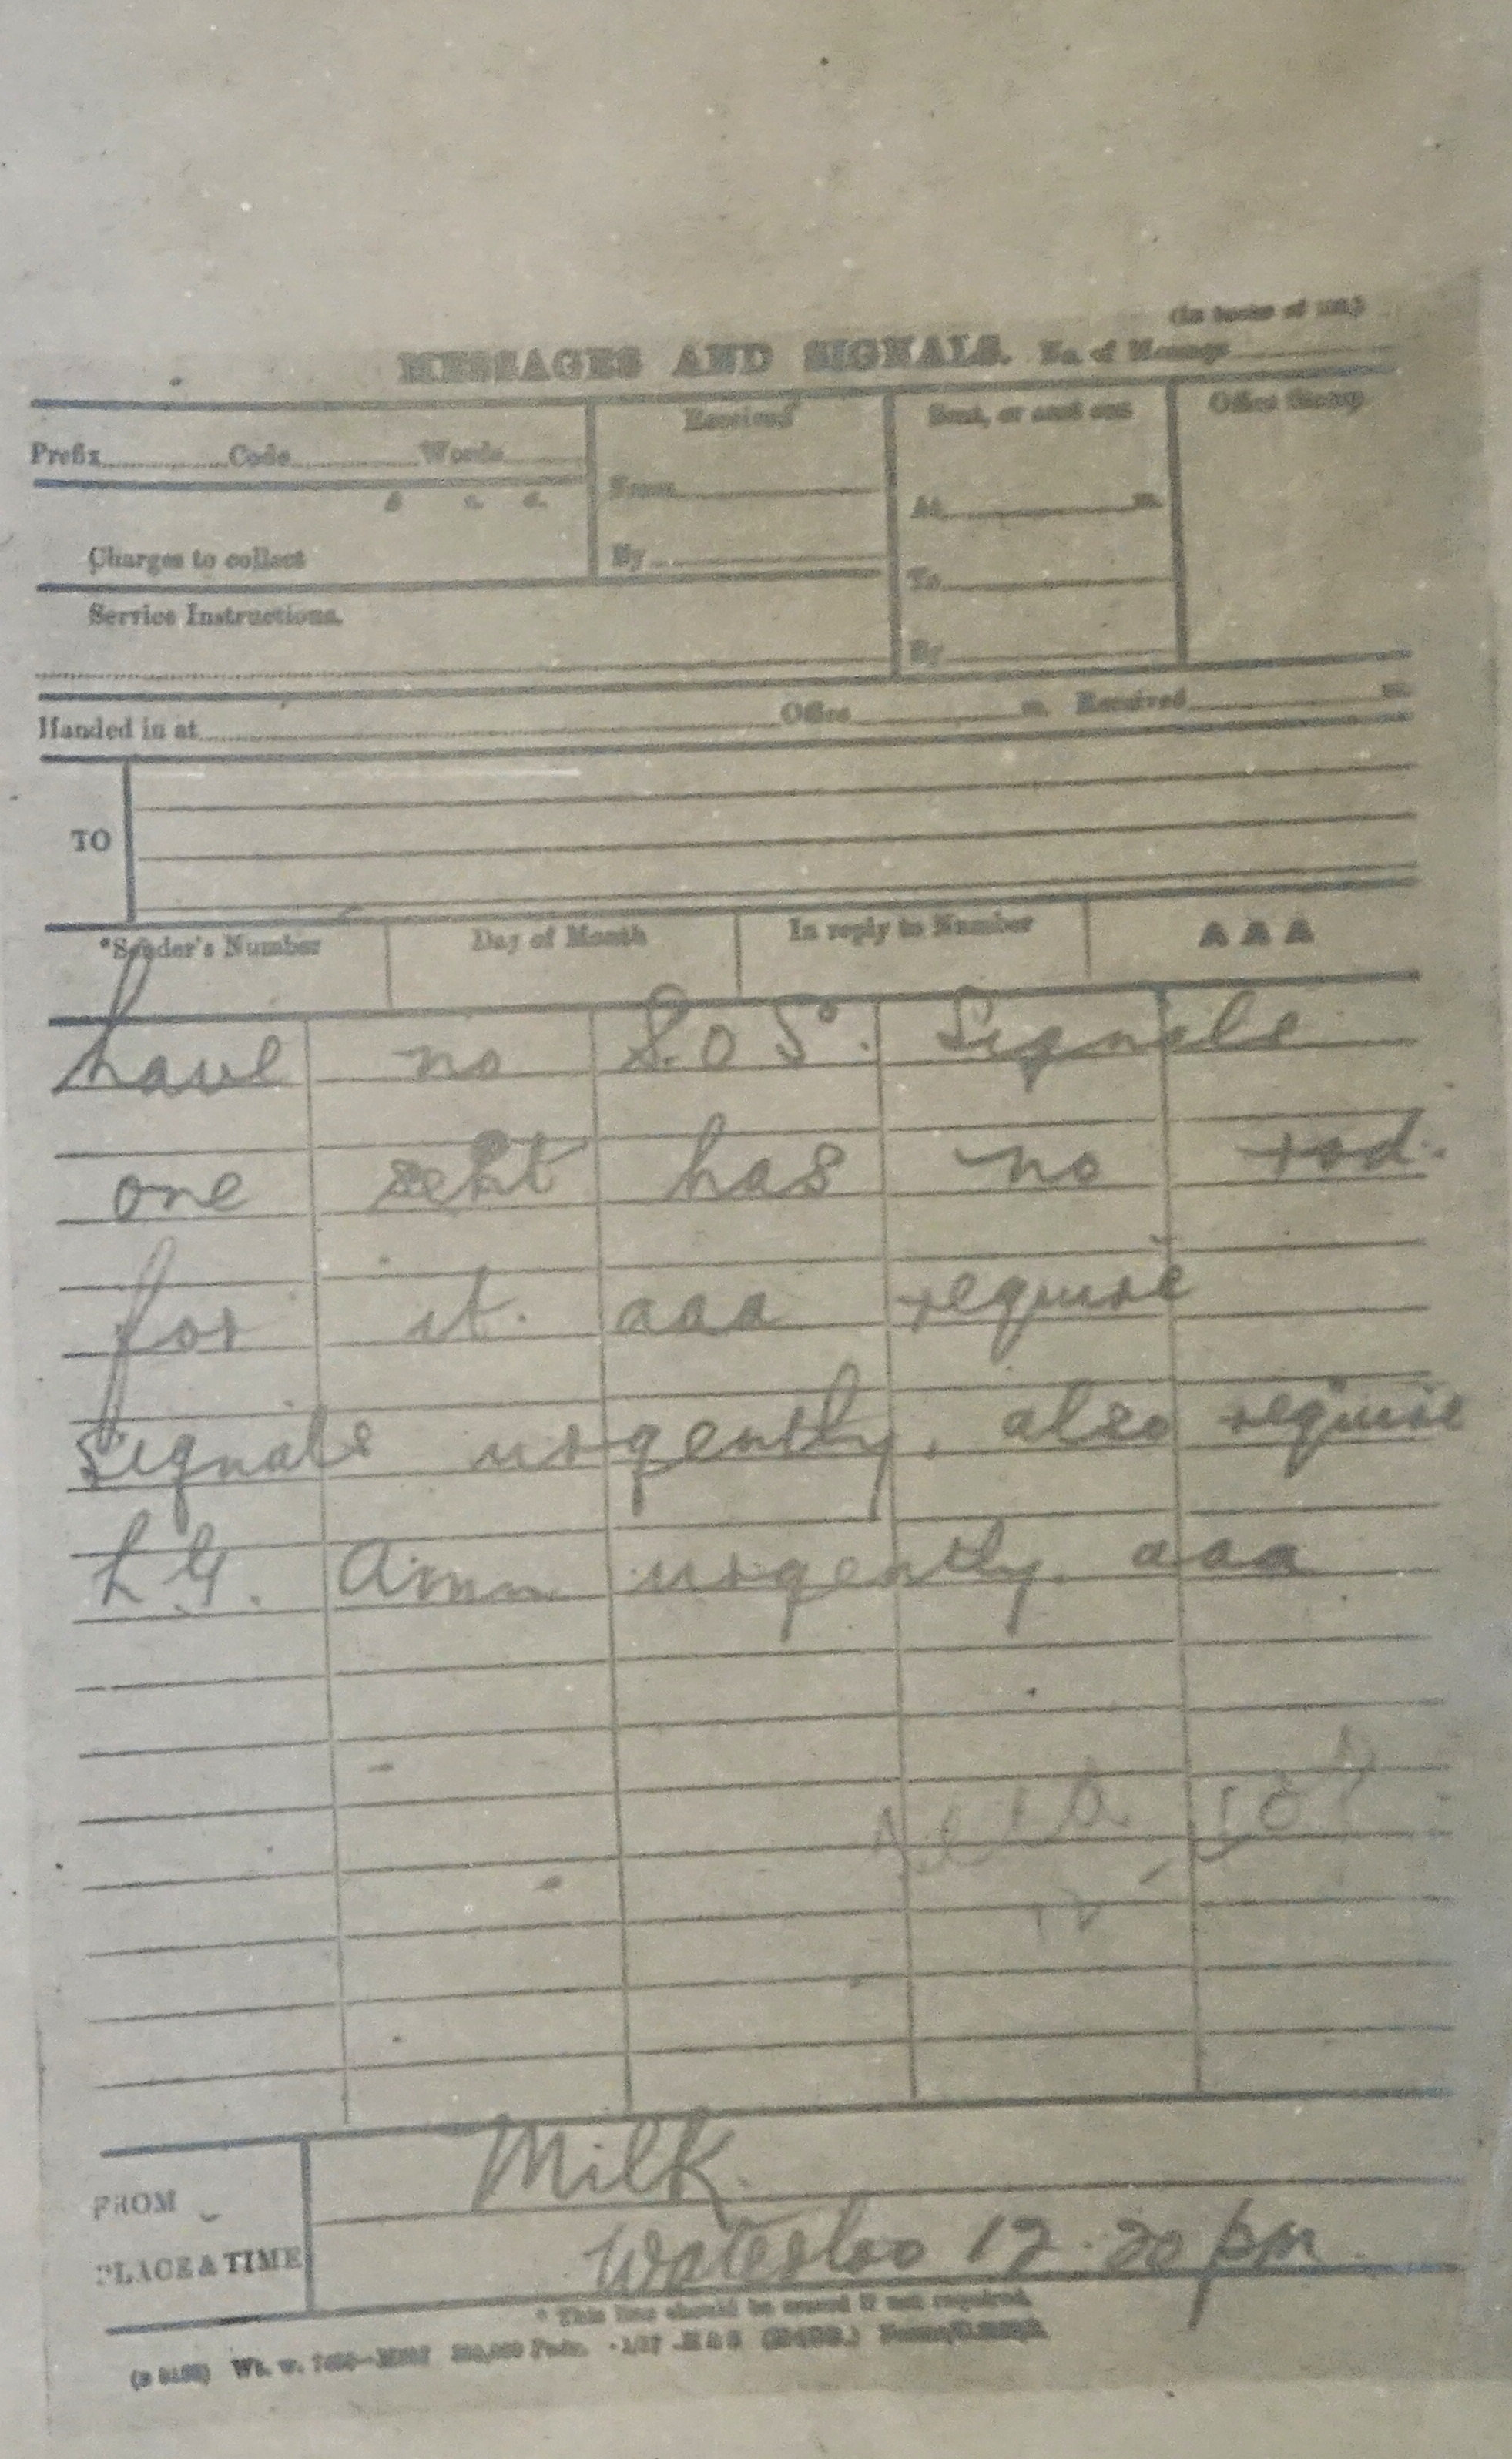 (In books of 100.)
MESSAGES AND SIGNALS. No. of Message
Prefix Code Words Received Sent, or sent out Office Stamp
£ s. d. From At m.
Charges to collect By To
Service Instructions. By
Handed in at Office m. Received m.
TO
*Sender's Number Day of Month In reply to Number AAA
have no S.O.S. Signals
one sent has no rod.
for it. aaa require
signals urgently, also require
L.G. Amn urgently. aaa
FROM Milk.
PLACE & TIME Waterloo 12.20 pm
* This line should be erased if not required.